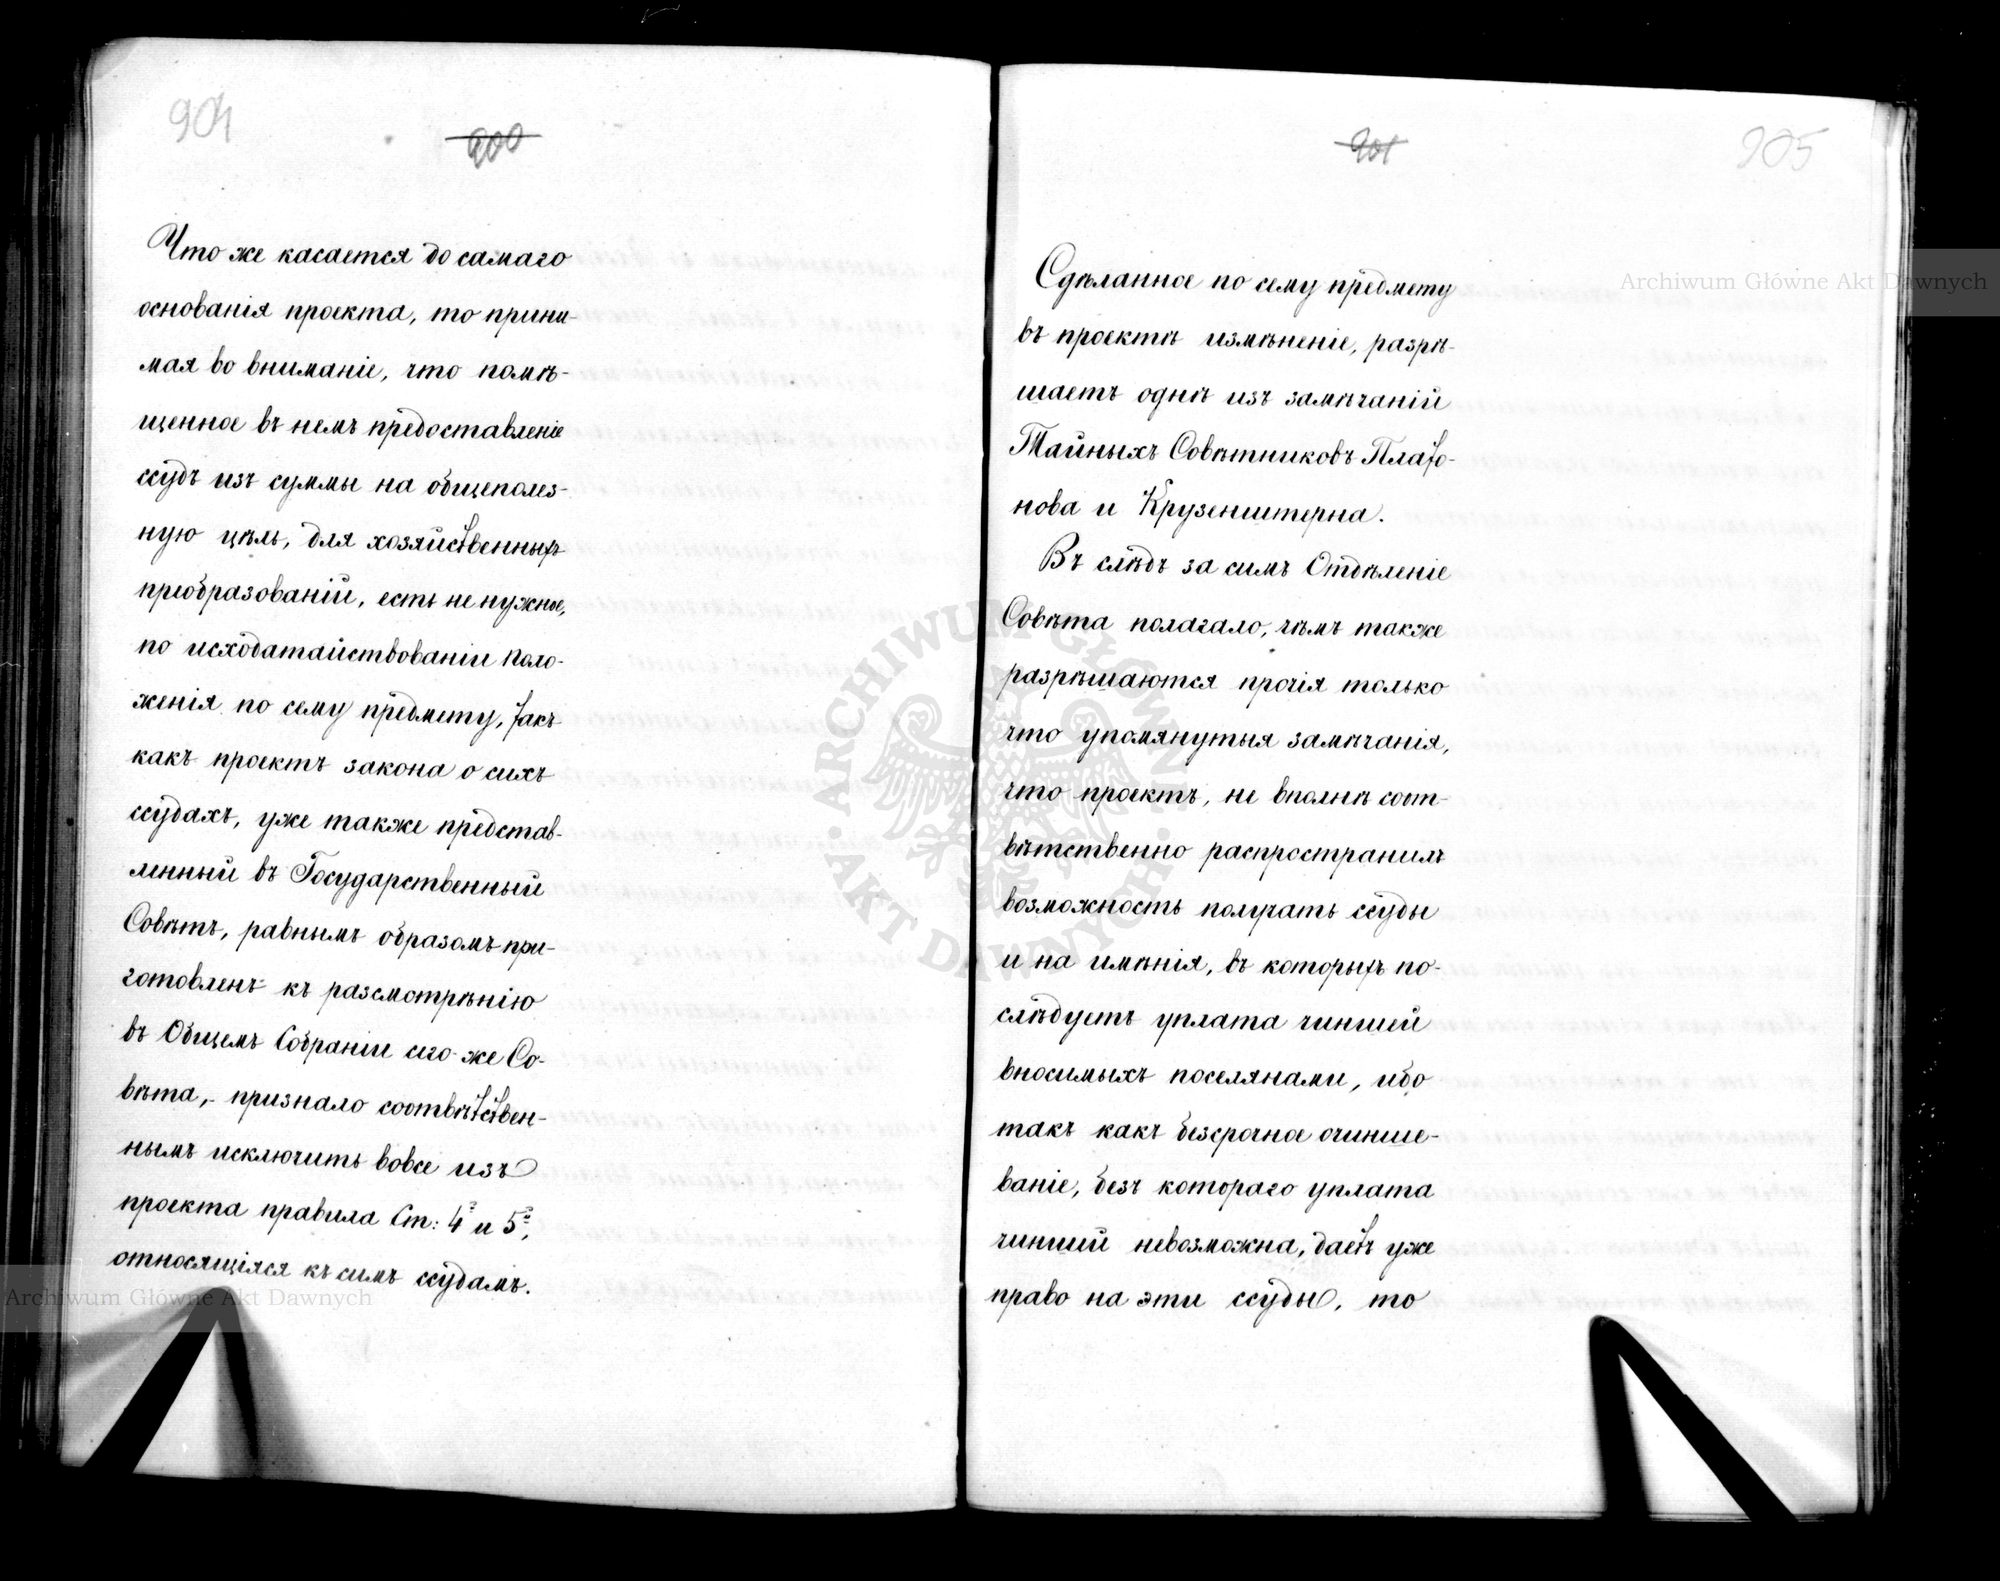 904
900
Что же касается до самаго
основанія проекта, то прини-
мая во вниманіе, что помѣ-
щенное въ немъ предоставленіе
ссудъ изъ суммы на общеполез-
ную цѣль, для хозяйственныхъ
преобразованій, есть не нужное,
по исходатайствованіи поло-
женія по сему предмету, такъ
какъ проектъ закона о сихъ
ссудахъ, уже также представ-
ленный въ Государственный
Совѣтъ, равнымъ образомъ при-
готовленъ къ разсмотрѣнію
въ Общемъ Собраніи сего же Со-
вѣта, - признало соотвѣтствен-
нымъ исключить вовсе изъ
проекта правила Ст: 4 и 5,
относящіяся къ симъ ссудамъ.
901
905
Сдѣланное по сему предмету
въ проектѣ измѣненіе, разрѣ-
шаетъ однѣ изъ замѣчаній
Тайныхъ Совѣтниковъ Плато-
нова и Крузенштерна.
Въ слѣдъ за симъ Отдѣленіе
Совѣта полагало, чѣмъ также
разрѣшаются прочія только
что упомянутыя замѣчанія,
что проектъ, не вполнѣ соот-
вѣтственно распространилъ
возможность получать ссуды
и на имѣнія, въ которыхъ по-
слѣдуетъ уплата чиншей
вносимыхъ поселянами, ибо
такъ какъ безсрочное очинше-
ваніе, безъ котораго уплата
чиншей невозможна, даетъ уже
право на эти ссуды, то
Archiwum Główne Akt Dawnych
Archiwum Główne Akt Dawnych
ARCHIWUM GŁÓWNE AKT DAWNYCH